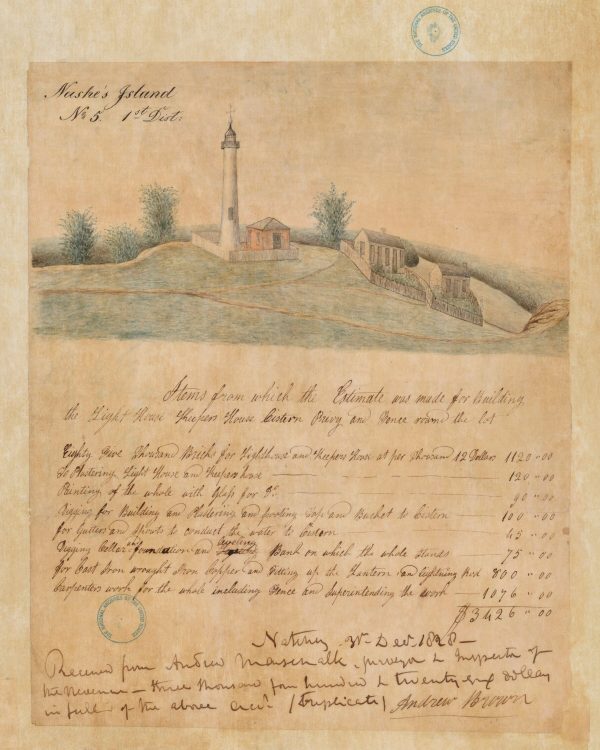 THE NATIONAL ARCHIVES OF THE UNITED STATES
Nashe's Island
No 5. 1st Dist:
Items from which the Estimate was made for Building
the Light House Keepers House Cistern Privy and Fence round the lot
Eighty Five Thousand Bricks for Lighthouse and Keepers House at per Thousand 12 Dollars 1120 "00
To Plastering Light House and Keepers house 120 "00
Painting of the whole with Glass for Do. 90 "00
Digging for Building and Plastering and footing Top and Bucket to Cistern 100 "00
for Gutters and Spouts to conduct the water to Cistern 45 "00
leveling
Digging Cellar and foundation and Bank on which the whole stands 75 "00
for Cast Iron wrought Iron Copper and Fitting up the Lantern and lightning Rod 800 "00
Carpenters work for the whole including Fence and Superintending the work 1076 "00
$3426 "00
THE NATIONAL ARCHIVES OF THE UNITED STATES
Natchez Decr 1828
Received from Andrew Marschalk, Surveyor & Inspector of
the Revenue — three thousand four hundred & twenty six dollars
in full of the above acct (Duplicate) Andrew Brown